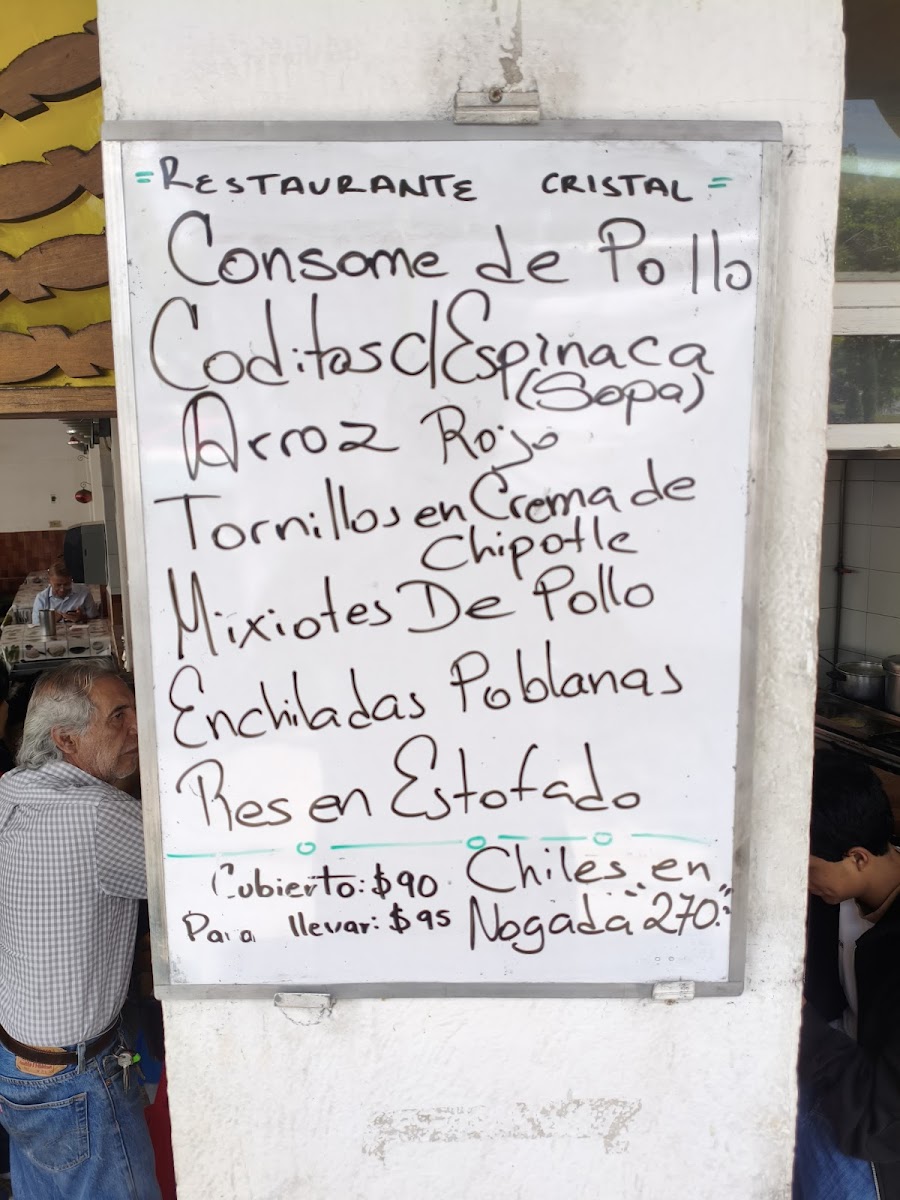 =RESTAURANTE CRISTAL=
Consome de Pollo
Coditos c/Espinaca
(Sopa)
Arroz Rojo
Tornillos en Crema de
Chipotle
Mixiotes De Pollo
Enchiladas Poblanas
Res en Estofado
Cubierto: $90
Para llevar: $95
Chiles en
Nogada 270.